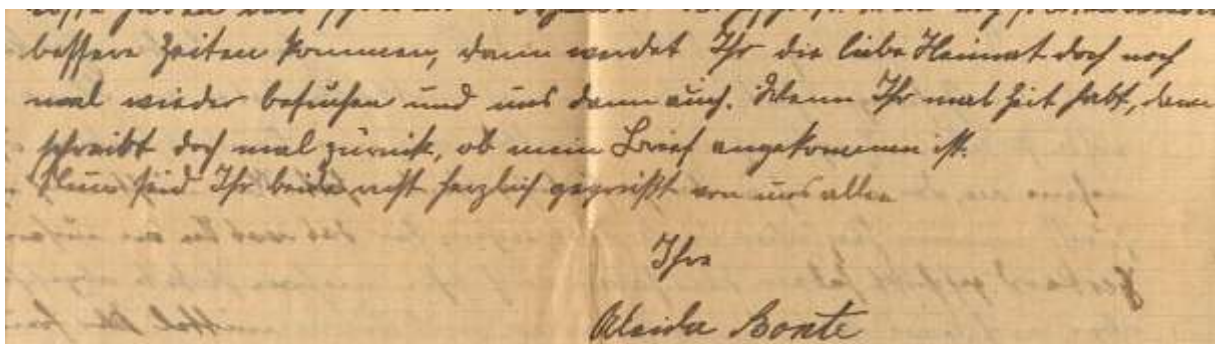 bessere Zeiten kommen, dann werdet Ihr die liebe Heimat doch noch
mal wieder besuchen und uns dann auch. Wenn Ihr mal Zeit habt, dann
schreibt doch mal zurück, ob mein Brief angekommen ist.
Nun seid Ihr beide recht herzlich gegrüßt von uns allen
Ihre
Aleida Bonte